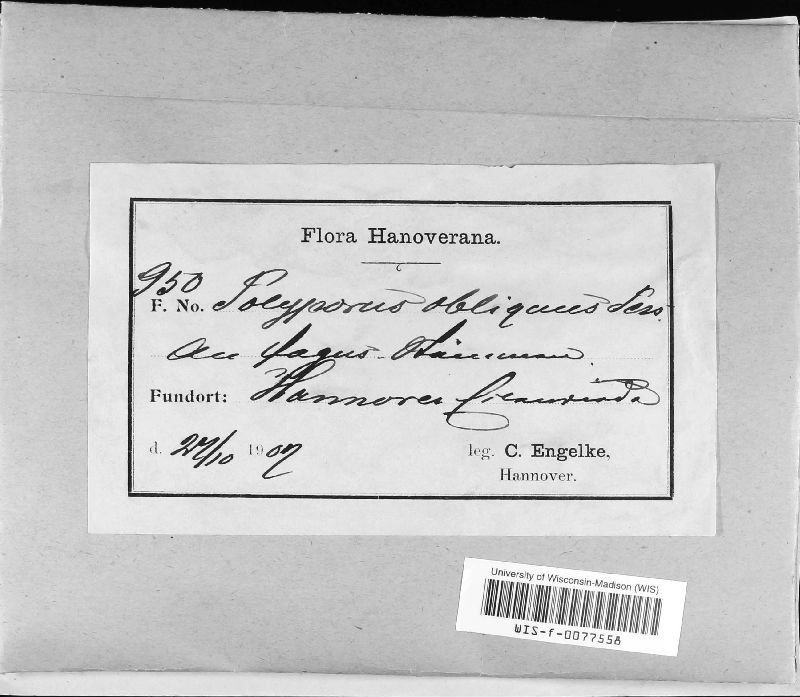 Flora Hanoverana.
950
F. No. Polyporus obliquus Pers.
An Fagus-Stämmen.
Fundort: Hannover Eilenriede
d. 27/10 1907 leg. C. Engelke,
Hannover.
University of Wisconsin-Madison (WIS)
WIS-f-0077558